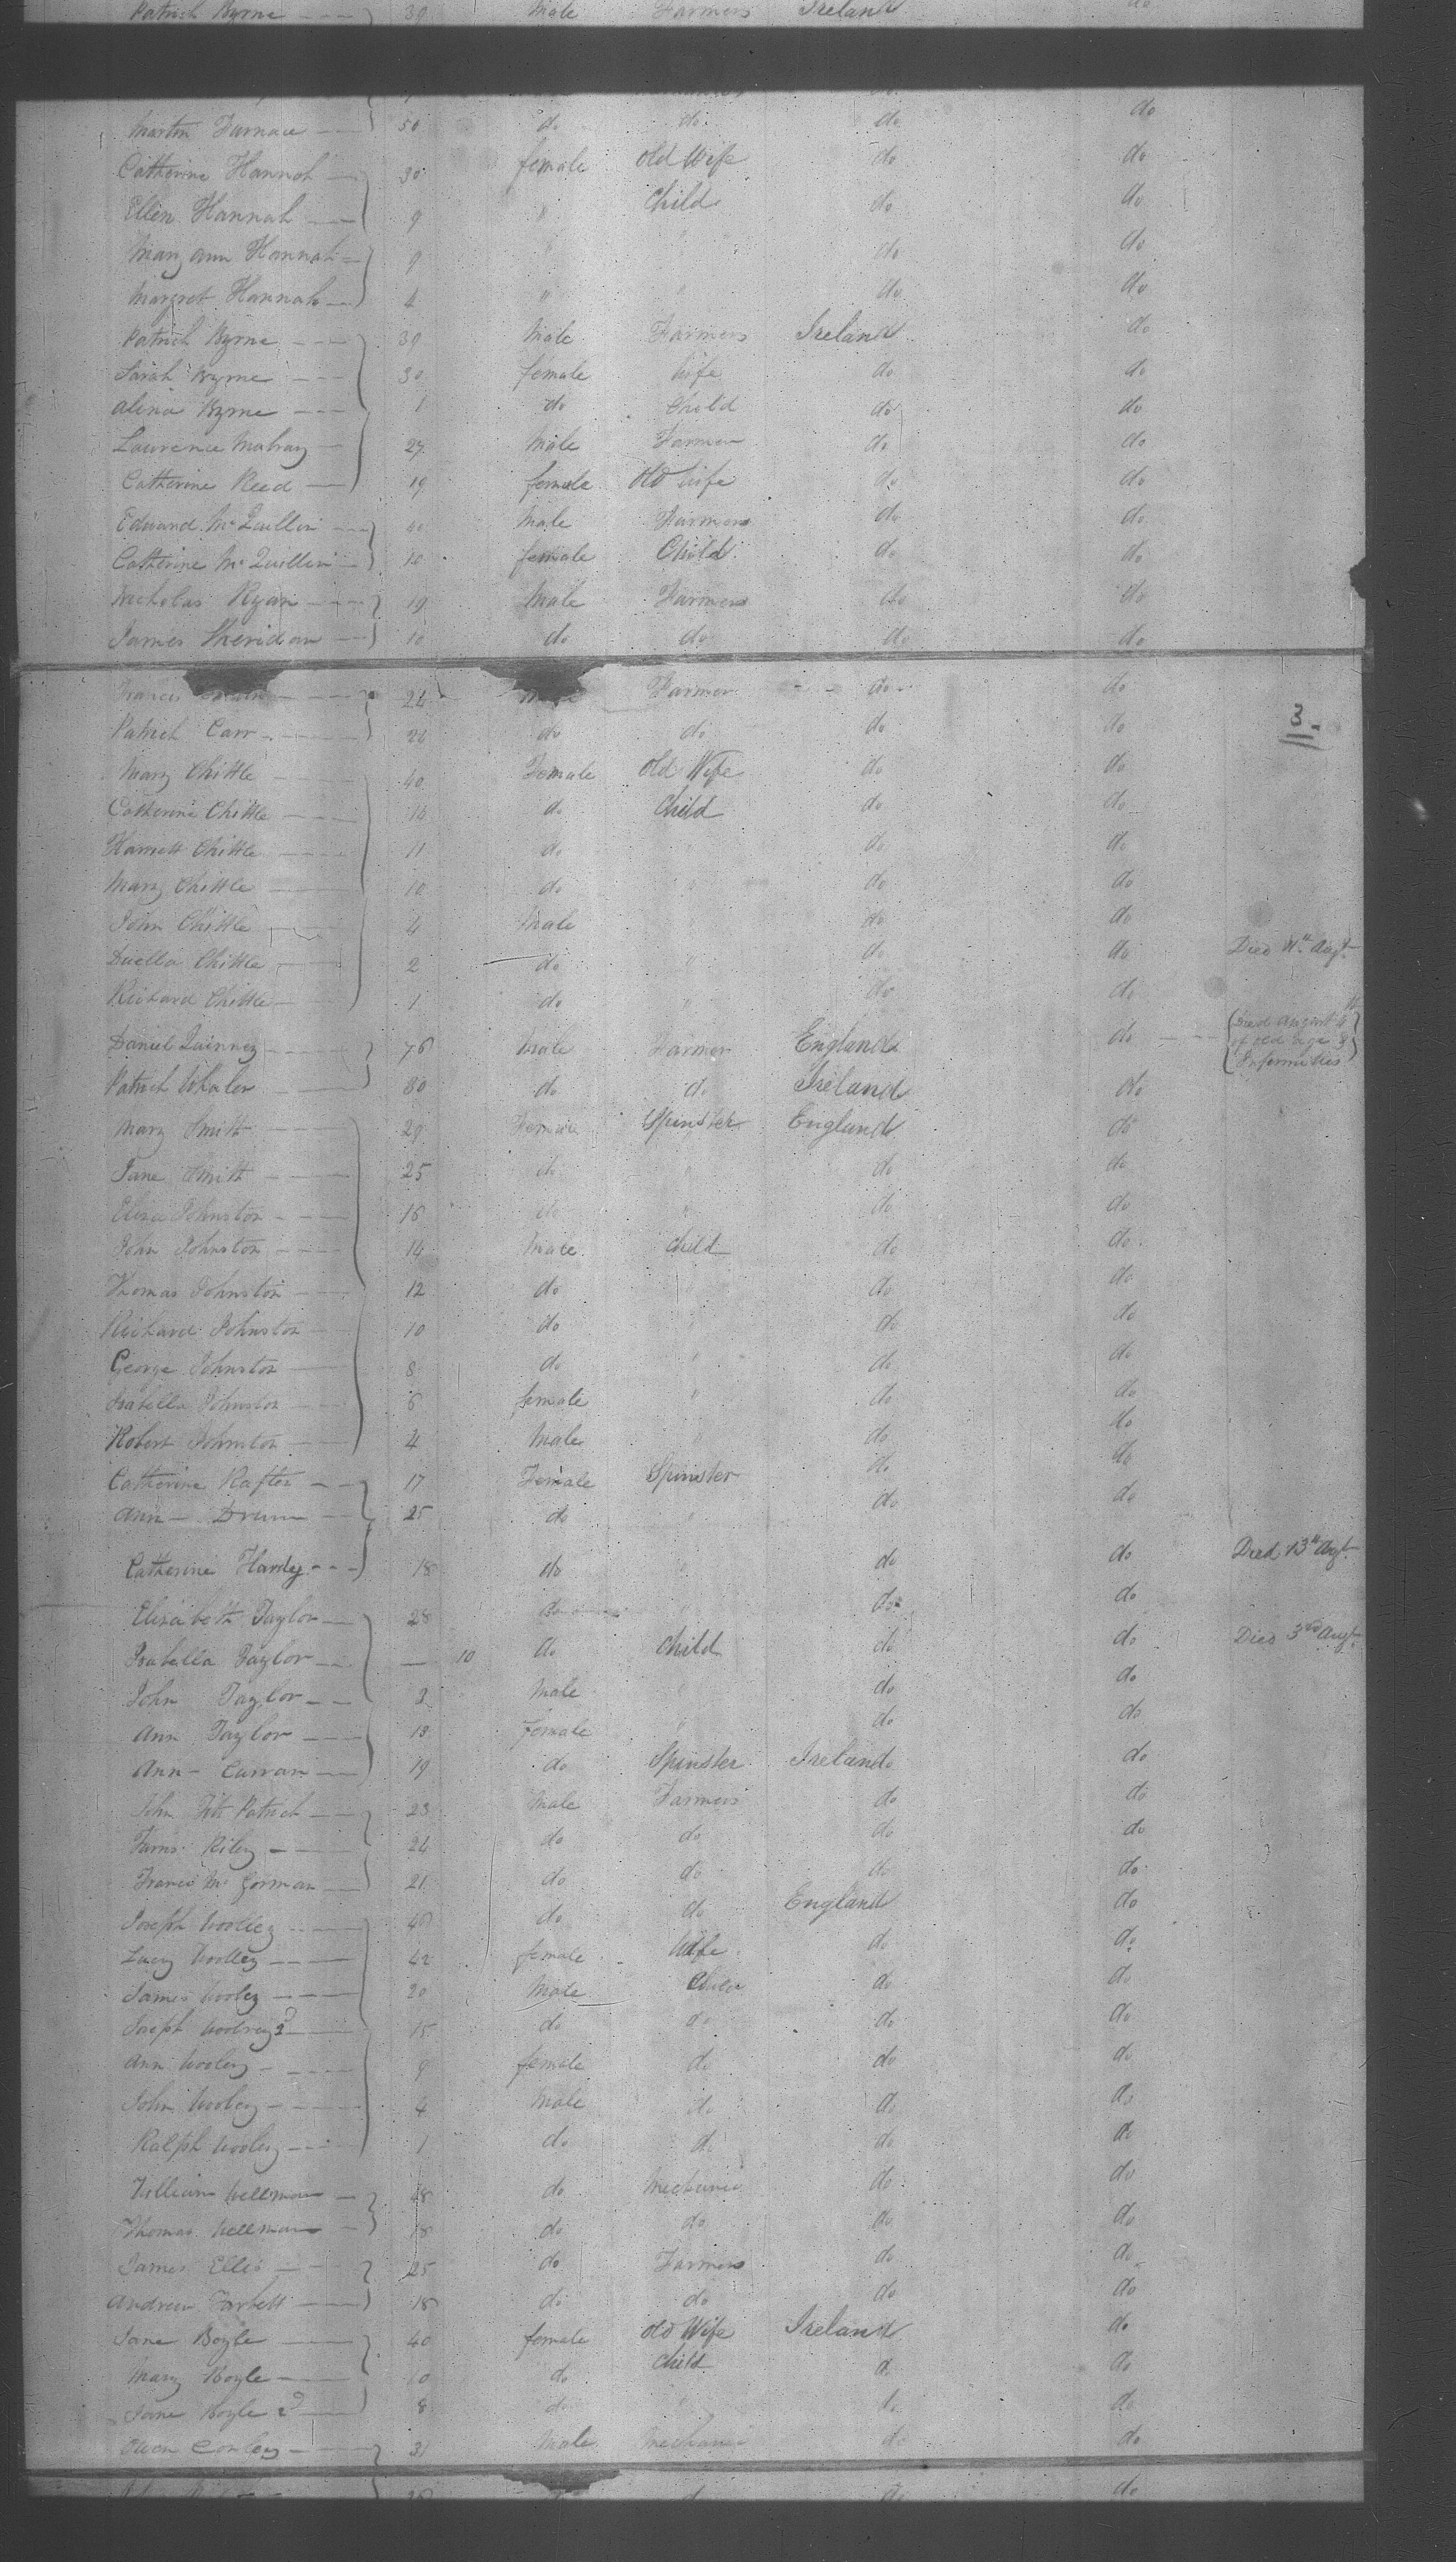 Patrick Byrne --- } 39 Male Farmers Ireland do
Martin Furnace --- } 50 do do do do
Catherine Hannah -- 30 female old Wife do do
Ellen Hannah --- 9 " Child do do
Mary ann Hannah -- 9 " " do do
Margret Hannah --- 4 " " do do
Patrick Byrne --- 39 Male Farmers Ireland do
Sarah Byrne --- 30 female Wife do do
alena Byrne --- 1 do Child do do
Lawrence Mabray -- 27 Male Farmer do do
Catherine Reed --- 19 female old wife do do
Edward Mc Quillin --- 40 Male Farmers do do
Catherine Mc Quillin -- 10 female Child do do
Nicholas Ryan --- 19 Male Farmers do do
James Sheridan --- 10 do do do do
Francis --- 24 Male Farmer -- do do
3
Patrick Carr --- 26 do do do do
Mary Chittle -- 40 Female old Wife do do
Catherine Chittle --- do Child do do
Harriett Chittle --- 11 do " do do
Mary Chittle --- 10 do " do do
John Chittle --- 4 Male " do do
Chittle --- 2 do " do do Died 11th Augt
Richard Chittle --- 1 do " do do
Daniel Quinney --- 76 Male Farmer England do -- {Died August 4th of old age & Infirmities}
Patrick Whalen --- 80 do do Ireland do
Mary Smith --- 29 Female Spinster England do
Jane Smith --- 25 do " do do
Eliza Johnston --- 16 do " do do
John Johnston --- 14 Male Child do do
Thomas Johnston --- 12 do " do do
Richard Johnston --- 10 do " do do
George Johnston --- 8 do " do do
Isabella Johnston --- 6 female " do do
Robert Johnston --- 4 Male " do do
Catherine Rafter --- 17 Female Spinster do do
Ann - Drum --- 25 do " do do
Catherine Hardy --- 18 do " do do Died 13th Augt
Elizabeth Taylor -- 28 do " do do
Isabella Taylor -- — 10 do Child do do Died 3rd Augt
John Taylor -- 3 Male " do do
Ann Taylor --- 13 female " do do
Ann - Curran --- 19 do Spinster Ireland do
John Fitz Patrick --- 23 Male Farmers do do
Riley --- 24 do do do do
Francis Mc Gorman -- 21 do do do do
Joseph Woolley --- 40 do do England do
Lucy Woolley --- 42 female Wife do do
James Wooley --- 20 Male Child do do
Joseph Wooley 2d --- 15 do do do do
Ann Wooley --- 9 female do do do
John Wooley --- 4 Male do do do
Ralph Wooley --- 1 do do do do
William Wellman -- 48 do Mechanic do do
Thomas Wellman -- 18 do do do do
James Ellis --- 25 do Farmers do do
Andrew --- 18 do do do do
Jane Boyle --- 40 female old Wife Ireland do
Mary Boyle --- 10 do Child do do
Jane Boyle 2d --- 8 do " do do
Owen Conley --- 31 Male Mechanic do do
do do do